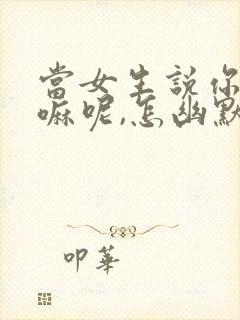 當女生說你
嘛呢,怎幽默
叩華